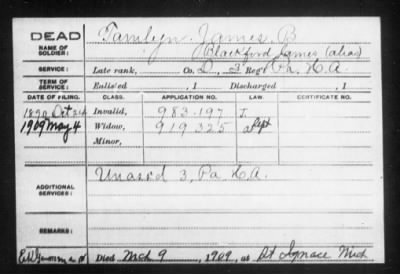 DEAD Tamlyn James B
NAME OF SOLDIER: Blackford James (alias)
SERVICE: Late rank, Co. D, 3 Reg't Pa. H.A.
TERM OF SERVICE: Enlisted , 1 Discharged , 1
DATE OF FILING. CLASS. APPLICATION NO. LAW. CERTIFICATE NO.
1890 Invalid, 983.197 J.
1909 May 4 Widow, 919 325
Minor,
ADDITIONAL SERVICES: Unassd 3, Pa H.A.
REMARKS:
Died Mch 9, 1909, at St Ignace Mich